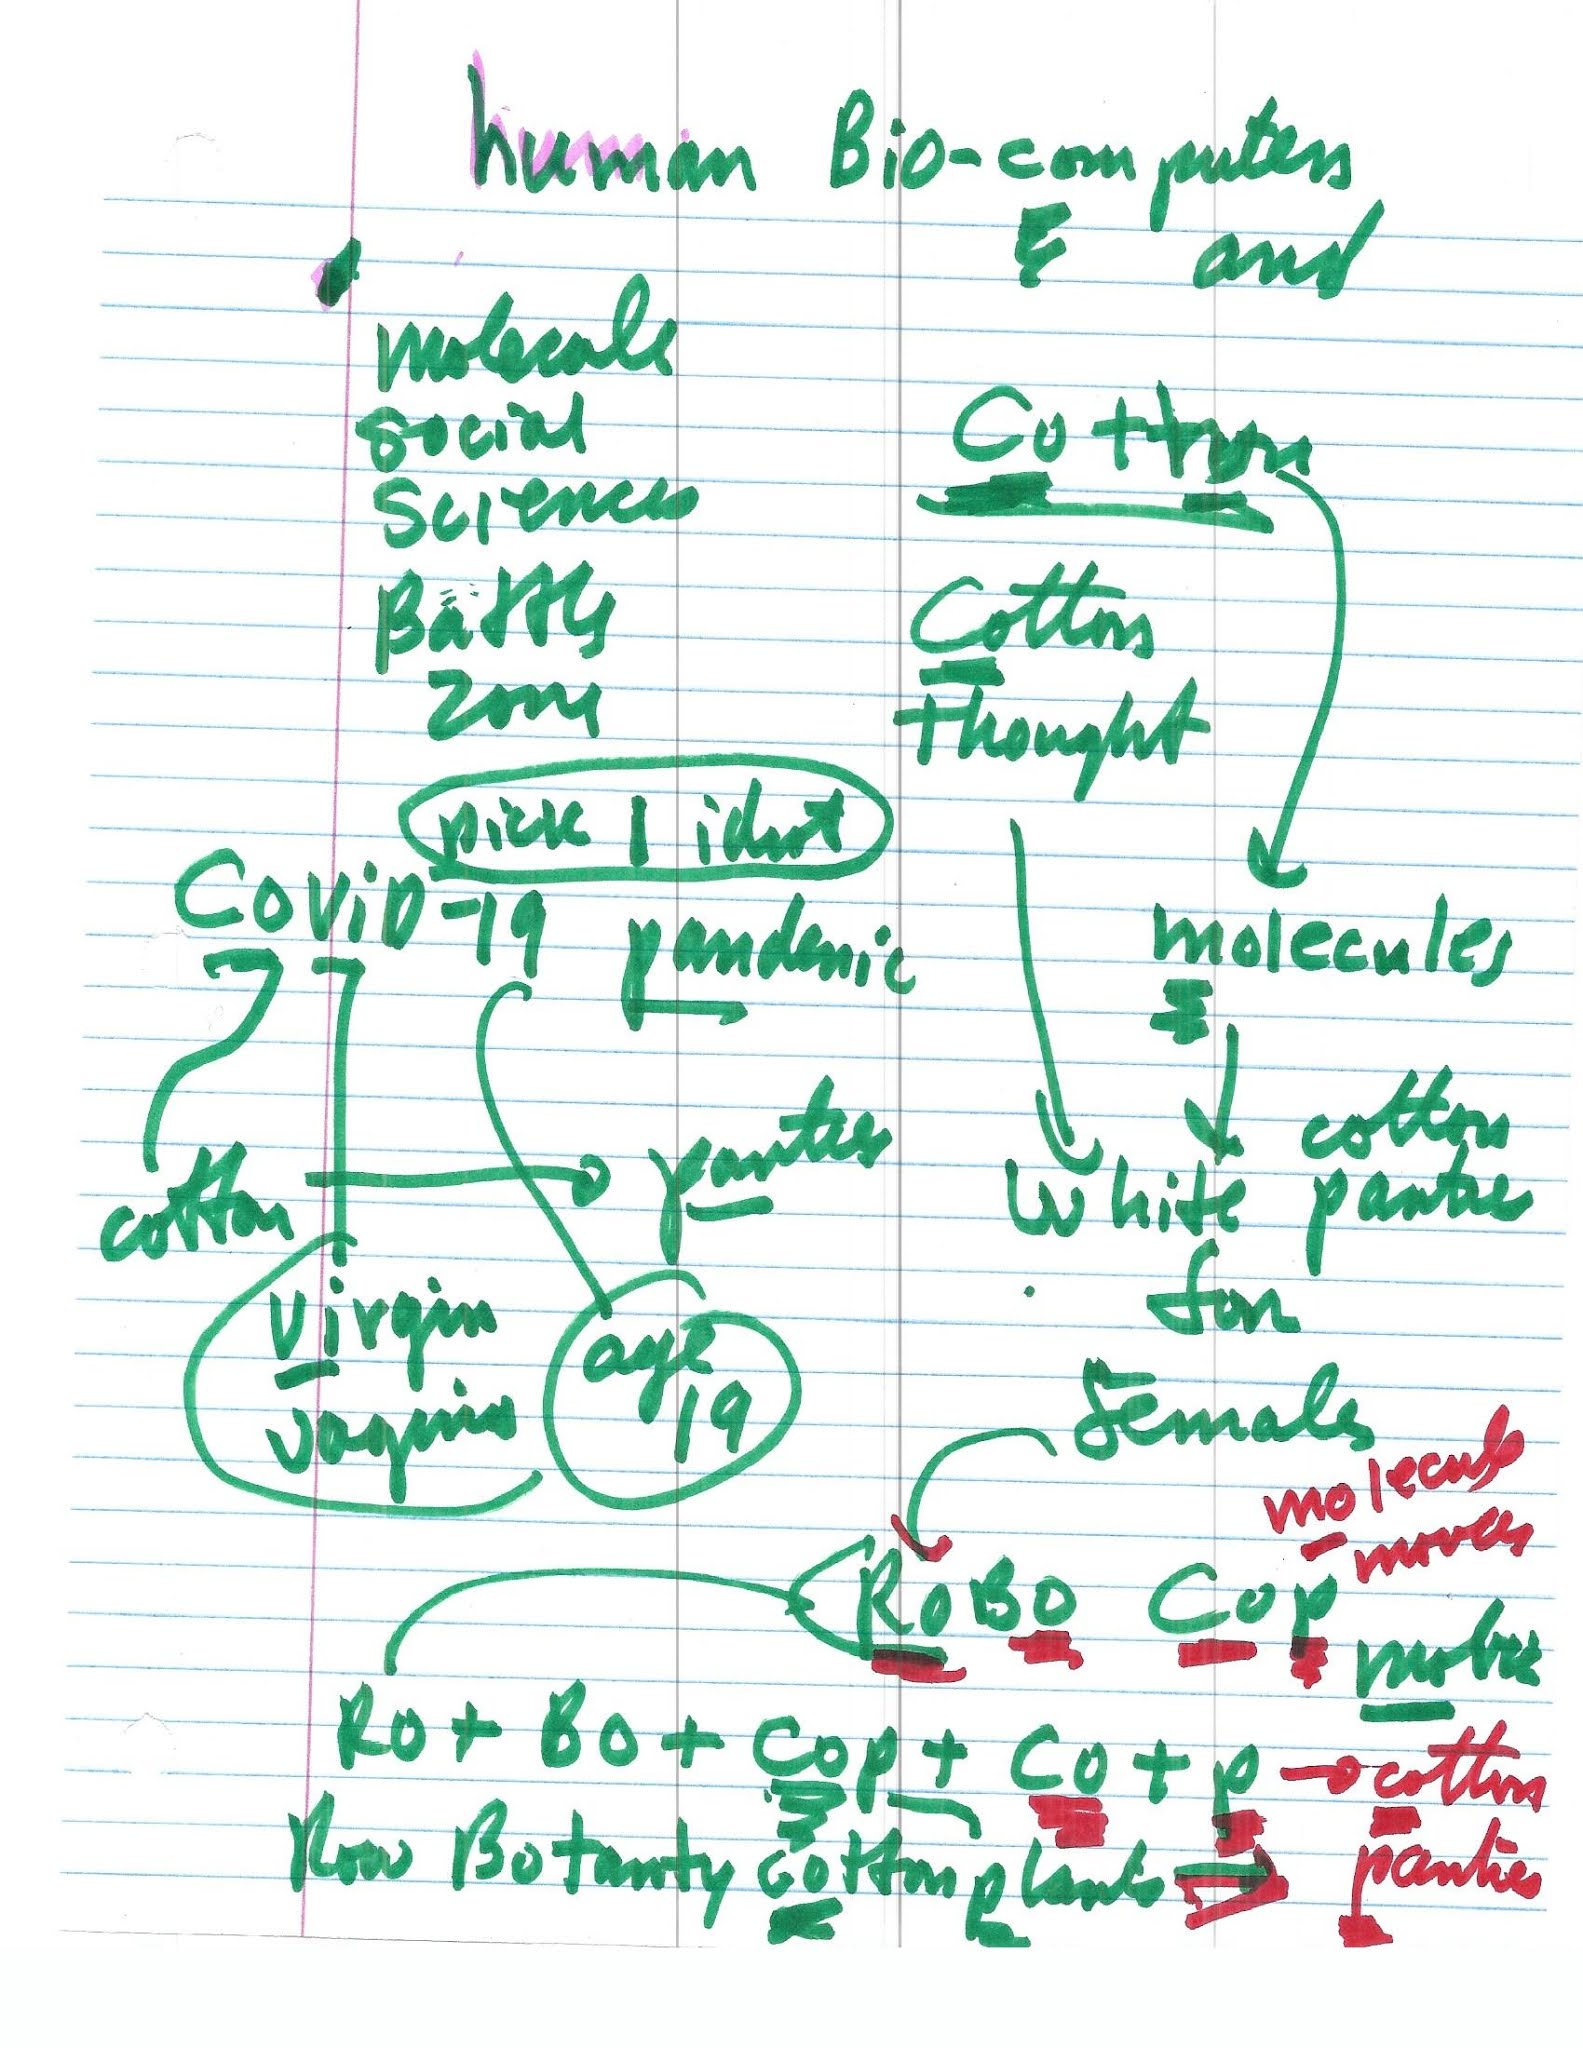 human Bio-computers
and
molecule
social
sciences
Battle
zone
Cotton
Cotton
thought
pick 1 idiot
COViD-19 pandemic
molecules
cotton
panties
cotton
panties
White
for
Females
virgin
vaginas
age
19
molecule
moves
ROBO COP
RO + BO + COP + CO + P
cotton
panties
Row Botanty cotton plants